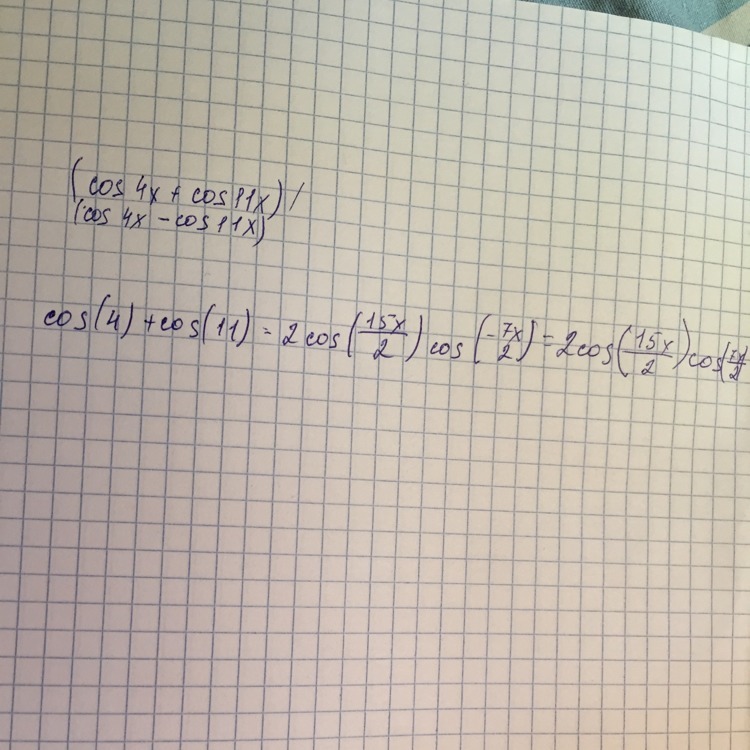 (cos 4x + cos 11x) /
(cos 4x - cos 11x)
cos(4) + cos(11) = 2 cos(15x/2) cos(-7x/2) = 2cos(15x/2) cos(7x/2